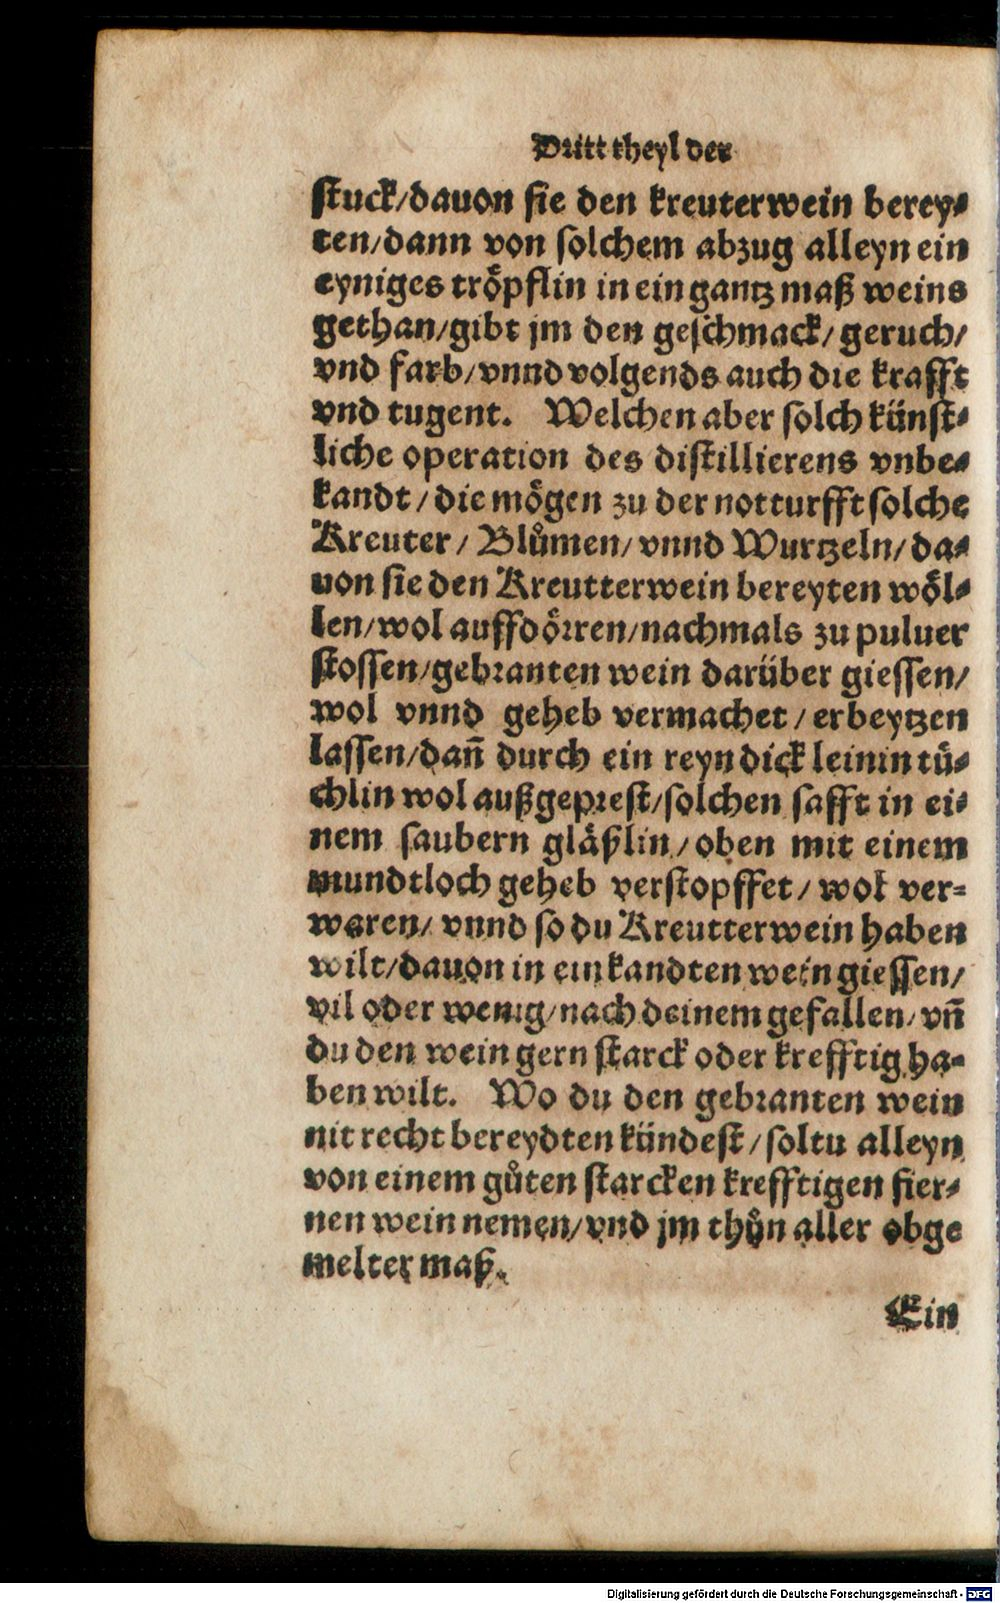 Dritt theyl der
stuck/dauon sie den kreuterwein berey⸗
ten/dann von solchem abzug alleyn ein
eyniges tröpflin in ein gantz maß weins
gethan/gibt jm den geschmack/geruch/
vnd farb/vnnd volgends auch die krafft
vnd tugent. Welchen aber solch künst⸗
liche operation des distillierens vnbe⸗
kandt/die mögen zu der notturfft solche
Kreuter/Blůmen/vnnd Wurtzeln/da⸗
uon sie den Kreutterwein bereyten wöl⸗
len/wol auffdörren/nachmals zu puluer
stossen/gebranten wein darüber giessen/
wol vnnd geheb vermachet/erbeytzen
lassen/dañ durch ein reyn dick leinin tü⸗
chlin wol außgeprest/solchen safft in ei⸗
nem saubern gläßlin/oben mit einem
mundtloch geheb verstopffet/wol ver⸗
waren/vnnd so du Kreutterwein haben
wilt/dauon in ein kandten wein giessen/
vil oder wenig/nach deinem gefallen/vñ
du den wein gern starck oder krefftig ha⸗
ben wilt. Wo du den gebranten wein
nit recht bereydten kündest/soltu alleyn
von einem gůten starcken krefftigen fier⸗
nen wein nemen/vnd jm thůn aller obge
melter maß.
Ein
Digitalisierung gefördert durch die Deutsche Forschungsgemeinschaft - DFG